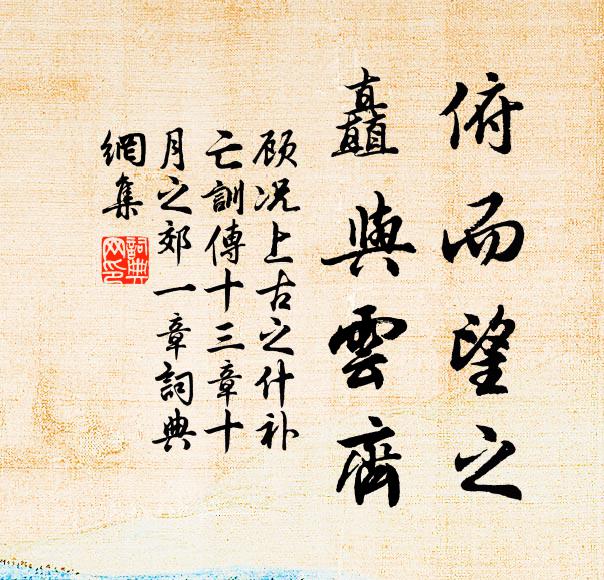 俯而望之
矗與雲齊
顾况上古之什补
亡訓傳十三章十
月之郊一章詞典
網集
詞典
网印